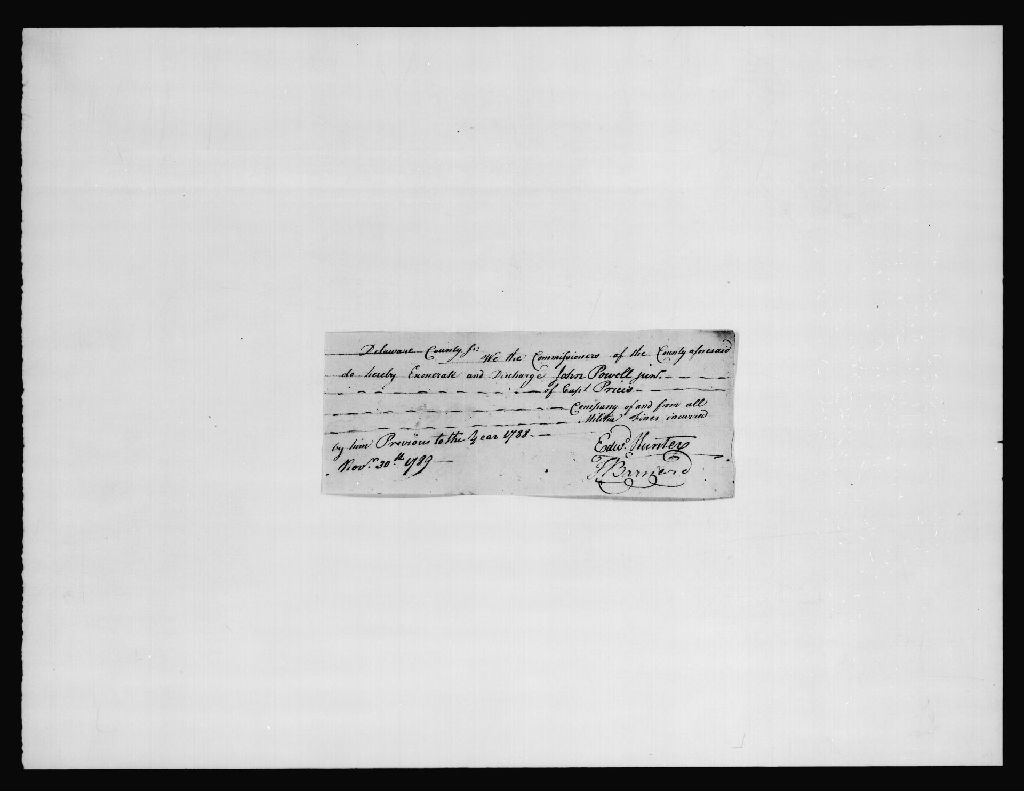 Delaware County ss. We the Commissioners of the County aforesaid
do hereby Exonerate and Discharge John Powell junr.
of Capt. Prices
Company of and from all
Militia Fines incurred
by him Previous to the Year 1788
Novr. 30th 1789
Edwd. Hunter